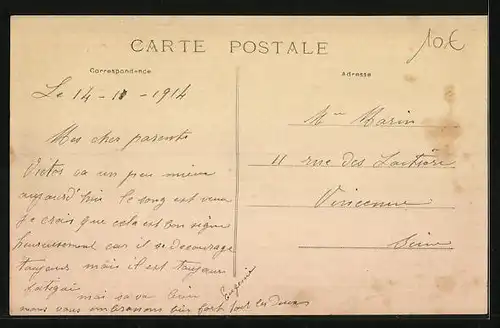 CARTE POSTALE
10€
Correspondance
Adresse
Le 14 - 11 - 1914
Mes cher parents
Victor va un peu mieux
aujourd'hui le sang est venu
je crois que cela est bon signe
heureusement car il se decourage
toujours mais il est toujours
fatigué
mai sa va bien
nous vous embrassons bien fort tout les deux
Eugenie
Mme Marin
11 rue des Laitière
Vincenne
Seine